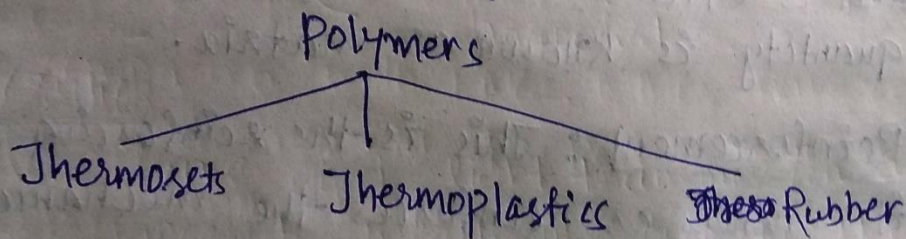 Polymers
Thermosets
Thermoplastics
Rubber